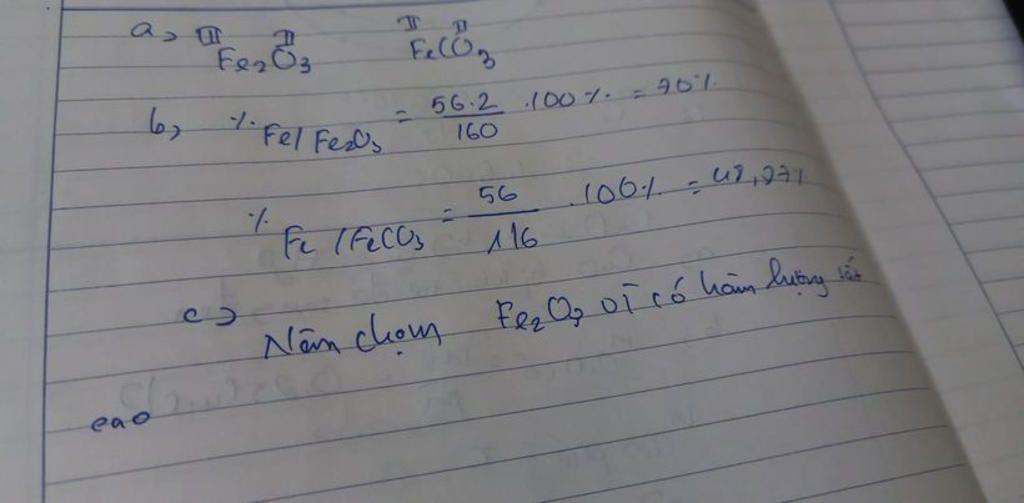 a, III II II II
Fe₂O₃ FeCO₃
b, % Fe/Fe₂O₃ = 56.2/160 .100% = 70%
% Fe/FeCO₃ = 56/116 .100% = 48,27%
c, Nên chọn Fe₂O₃ vì có hàm lượng sắt
cao